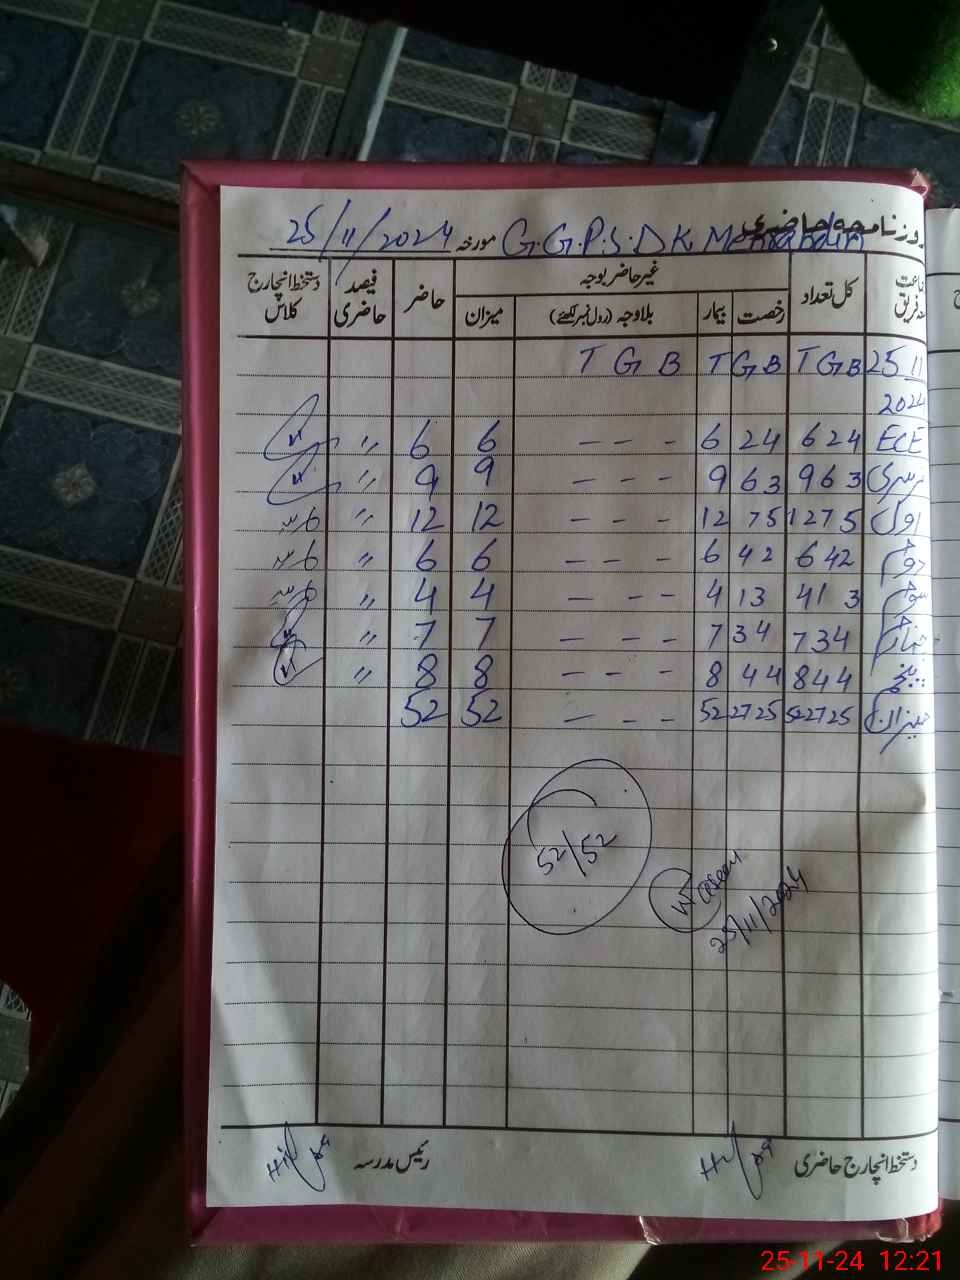 روزنامچہ حاضری G.G.P.S.DK مورخہ 25/11/2024
کل تعداد غیر حاضر بوجہ حاضر فیصد حاضری دستخط انچارج کلاس
رخصت بیمار بلاوجہ (رول نمبر لکھئے) میزان
25 11 T G B T G B T G B
2024
ECE 6 2 4 6 2 4 - - - 6 6 "
نرسری 9 6 3 9 6 3 - - - 9 9 "
اول 12 7 5 12 7 5 - - - 12 12 "
دوم 6 4 2 6 4 2 - - - 6 6 "
سوم 4 1 3 4 1 3 - - - 4 4 "
چہارم 7 3 4 7 3 4 - - - 7 7 "
پنجم 8 4 4 8 4 4 - - - 8 8 "
میزان 52 27 25 52 27 25 - - - 52 52
52/52
25/11/2024
دستخط انچارج حاضری رئیس مدرسہ
25-11-24 12:21